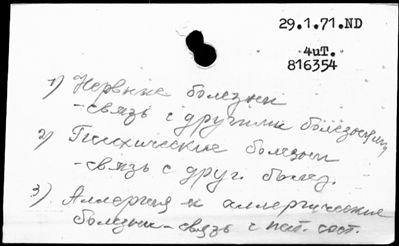 29.1.71.ND
4иT.
816354
1) Нервные болезни
-связь с другими болезнями
2) Психические болезни
-связь с друг. болез.
3) Аллергия и аллергические
болезни-связь с пат. сост.